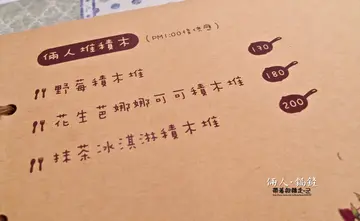 倆人堆積木 (PM1:00後供應)
野莓積木堆 170
花生芭娜娜可可積木堆 180
抹茶冰淇淋積木堆 200
倆人‧鍋鏟